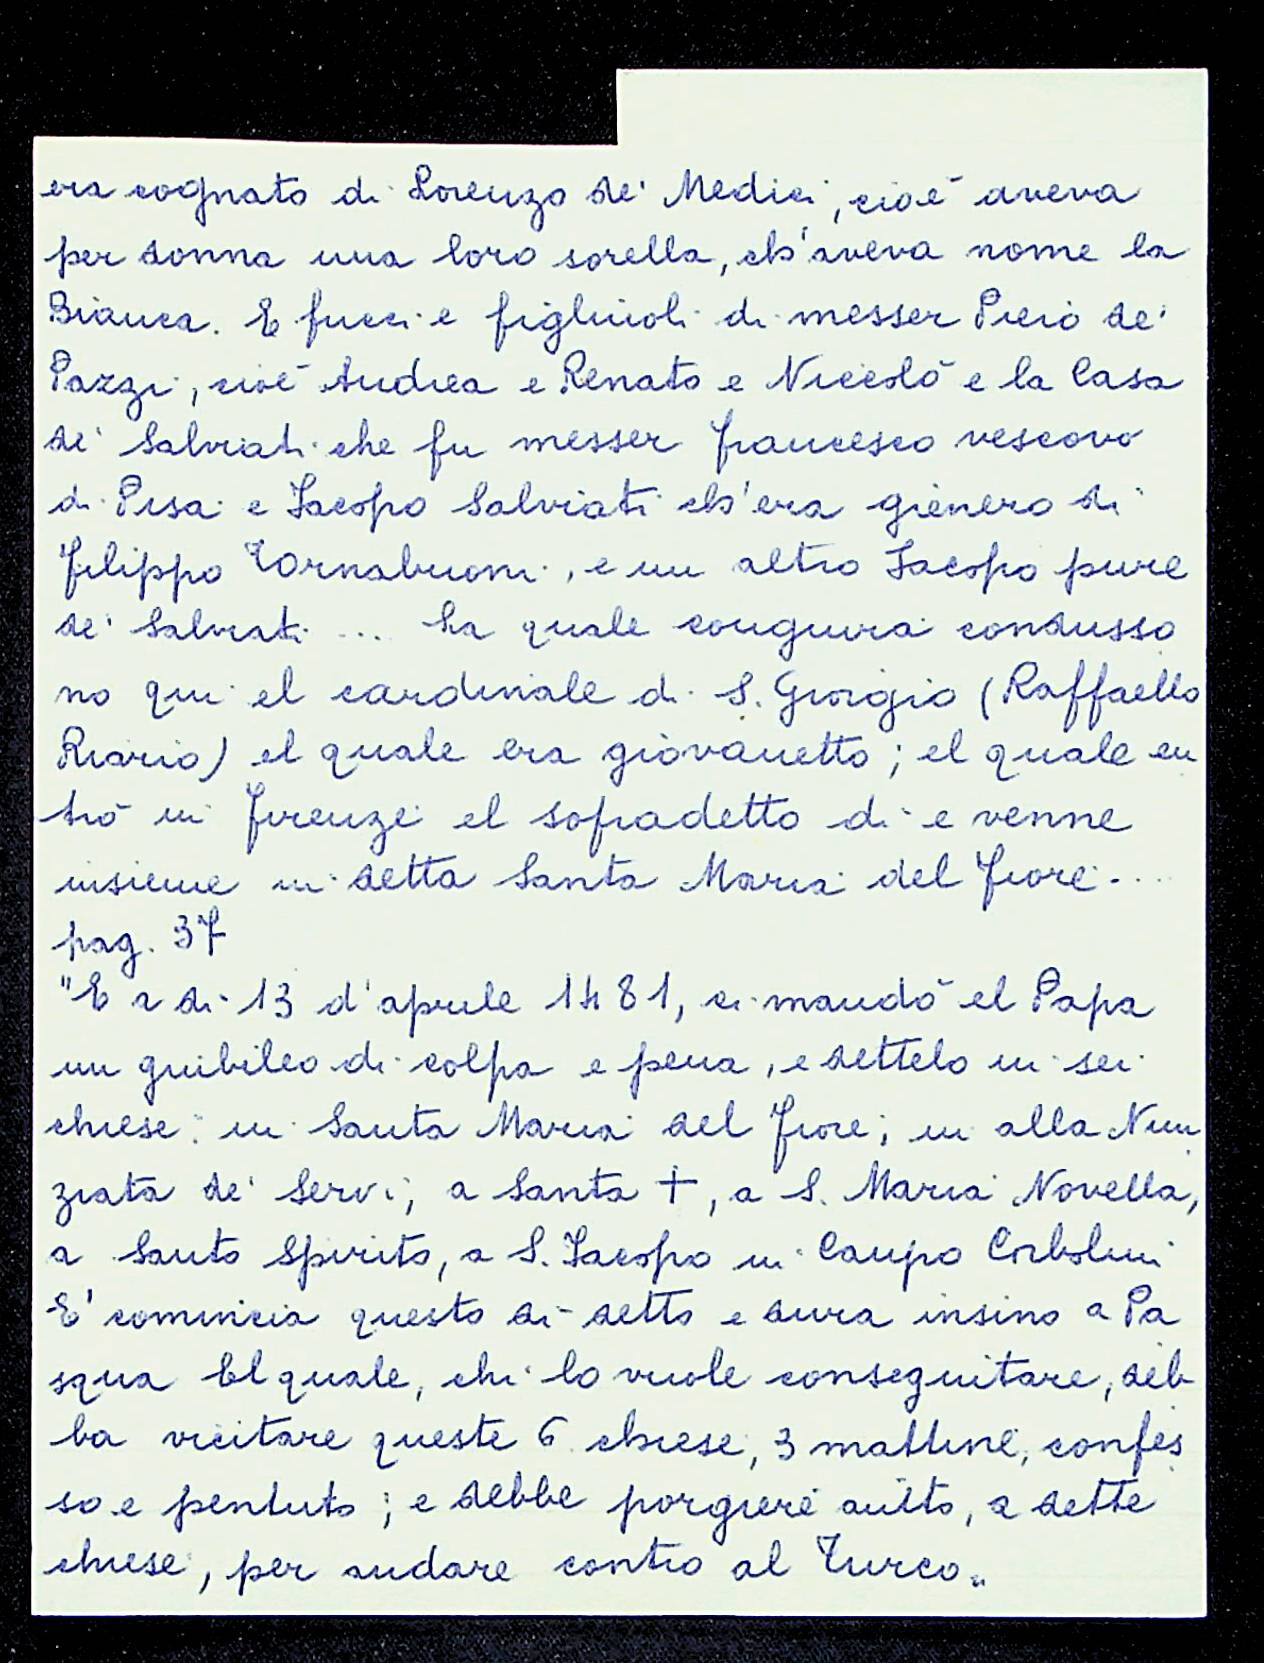 era cognato di Lorenzo de' Medici, cioè aveva
per donna una loro sorella, ch'aveva nome la
Bianca. E fucci e figliuoli di messer Piero de'
Pazzi, cioè Andrea e Renato e Niccolò e la Casa
de' Salviati che fu messer Francesco vescovo
di Pisa e Iacopo Salviati ch'era gienero di
Filippo Tornabuoni, e un altro Iacopo pure
de' Salviati ... La quale congiura condusso
no qui el cardinale di S. Giorgio (Raffaello
Riario) el quale era giovanetto; el quale en
trò in Firenze el sopradetto dì e venne
insieme in detta Santa Maria del Fiore....
pag. 37
"E a dì 13 d'aprile 1481, ci mandò el Papa
un giubileo di colpa e pena, e dettelo in sei
chiese: in Santa Maria del Fiore; in alla Nun
ziata de' Servi; a Santa +, a S. Maria Novella,
a Santo Spirito, a S. Iacopo in Campo Corbolini
E' comincia questo dì detto e dura insino a Pa
squa El quale, chi lo vuole conseguitare, deb
ba vicitare queste 6 chiese, 3 mattine, confes
so e pentuto; e debbe porgiere aiuto, a dette
chiese, per andare contro al Turco„